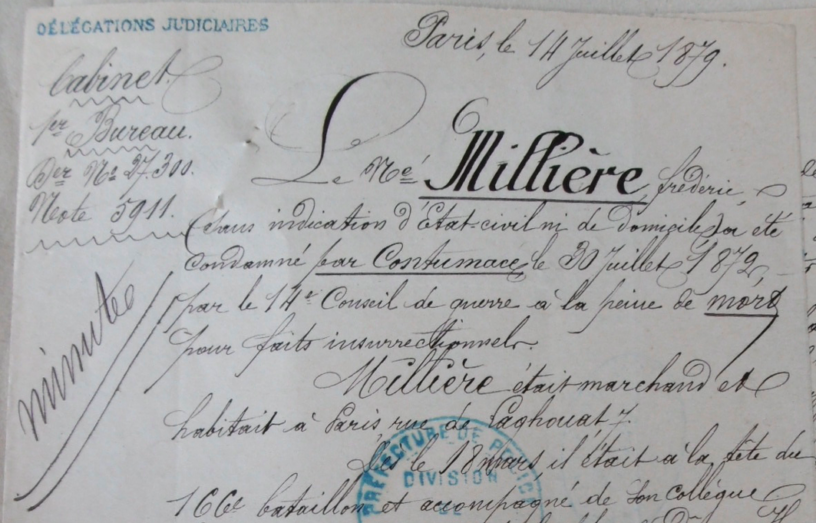 DÉLÉGATIONS JUDICIAIRES
Paris, le 14 Juillet 1879.
Cabinet
1er Bureau.
Der No 27.300.
Note 5911.
minute
Le Né Millière, frédéric,
(sans indication d'État-civil ni de domicile) a été
Condamné par Contumace, le 30 Juillet 1872,
par le 14e Conseil de guerre à la peine de mort
pour faits insurrectionnels.
Millière était marchand et
habitait à Paris rue de Laghouat 7.
Dès le 18 mars, il était à la tête du
166e bataillon et accompagné de son collègue
PRÉFECTURE DE POLICE
DIVISION